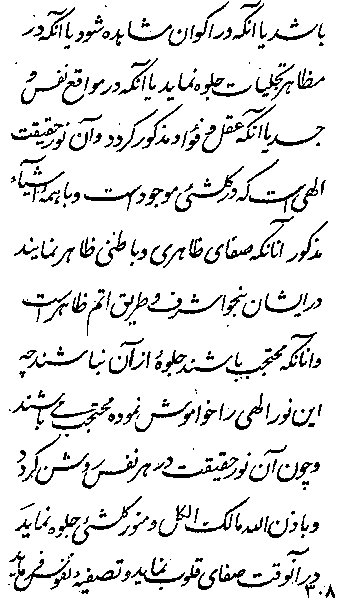 باشد یا انکه در اکوان مشاهده شود یا انکه در
مظاهر تجلیات جلوه نماید یا انکه در مواقع نفس و
جسد یا انکه عقل و فؤاد مذکور گردد و آن نور حقیقت
الهی است که در کلشئی موجود است و با همه اشیآء
مذکور انانکه صفای ظاهری و باطنی ظاهر نمایند
در ایشان بنحو اشرف و طریق اتم ظاهر است
و انانکه محتجب باشند جلوهٔ از آن نباشند چه
این نور الهی را خواموش نموده محتجب می باشند
و چون آن نور حقیقت در هر نفس روشن گردد
و باذن الله مالک الکل و منور کلشئی جلوه نماید
در آنوقت صفای قلوب نماید و تصفیه نفوس فرماید
۳۰۸